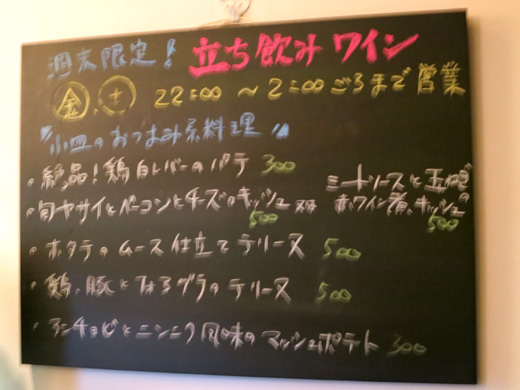 週末限定! 立ち飲みワイン
金、土 22:00 ～ 2:00ごろまで営業
"小皿のおつまみ系料理"
・絶品!鶏白レバーのパテ 300
・旬ヤサイとベーコンとチーズのキッシュ 500
ミートソースと
赤ワイン煮、キッシュ 500
・ホタテのムース仕立てテリーヌ 500
・鶏、豚とフォアグラのテリーヌ 500
・アンチョビとニンニク風味のマッシュポテト 300